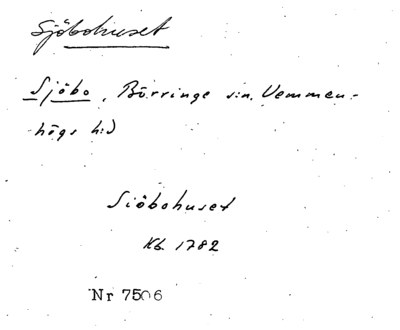 Sjöbohuset
Sjöbo, Börringe s:n, Vemmen-
högs h:d
Siöbohuset
Kb. 1782
Nr 7506